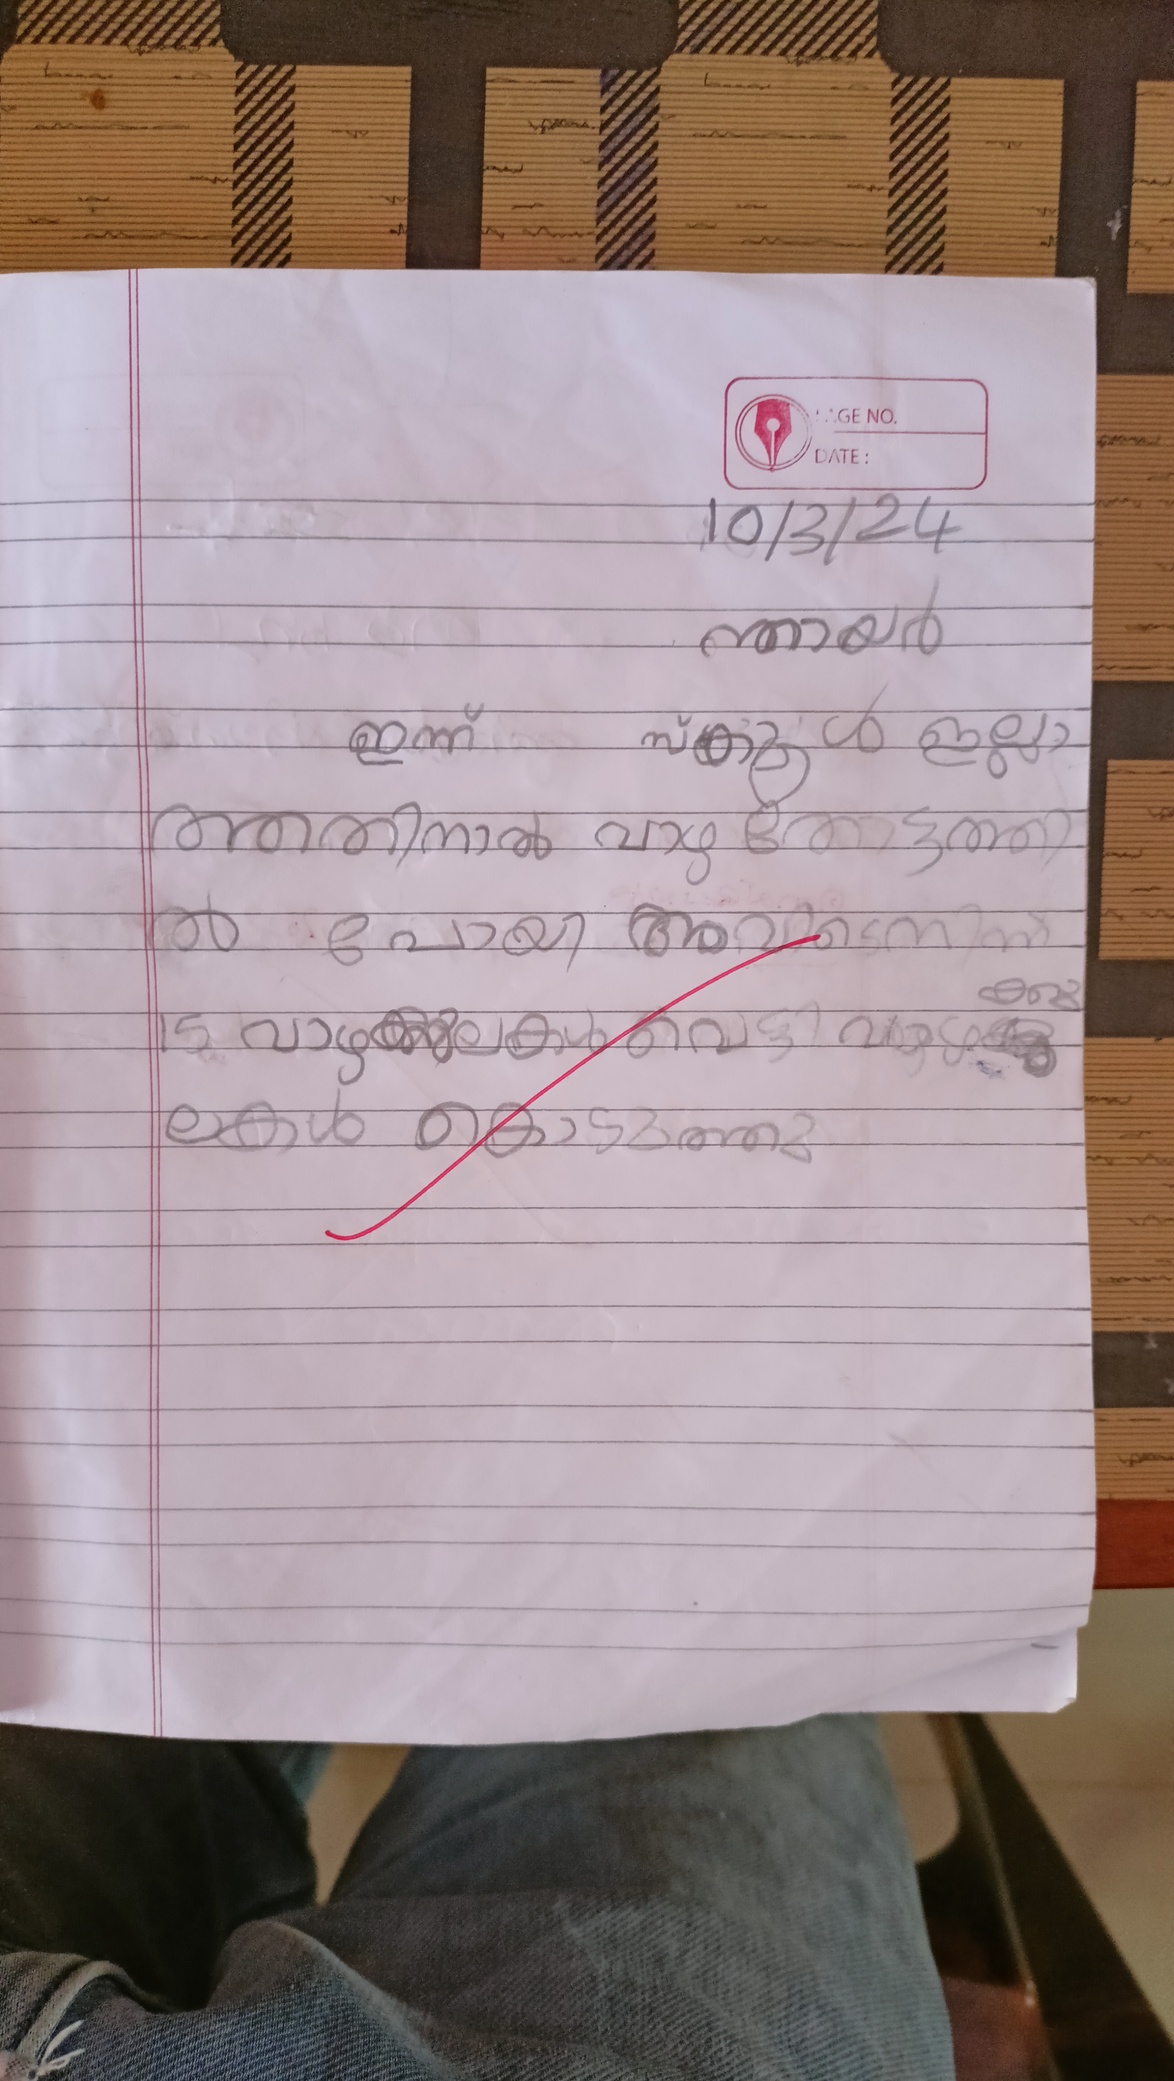 PAGE NO.
DATE :
10/3/24
ഞായർ
ഇന്ന് സ്കൂൾ ഇല്ലാ
ത്തതിനാൽ വാഴ തോട്ടത്തി
ൽ പോയി അവിടെനിന്ന്
15 വാഴക്കുലകൾ വെട്ടി വാഴ
ലകൾ കൊടുത്തു